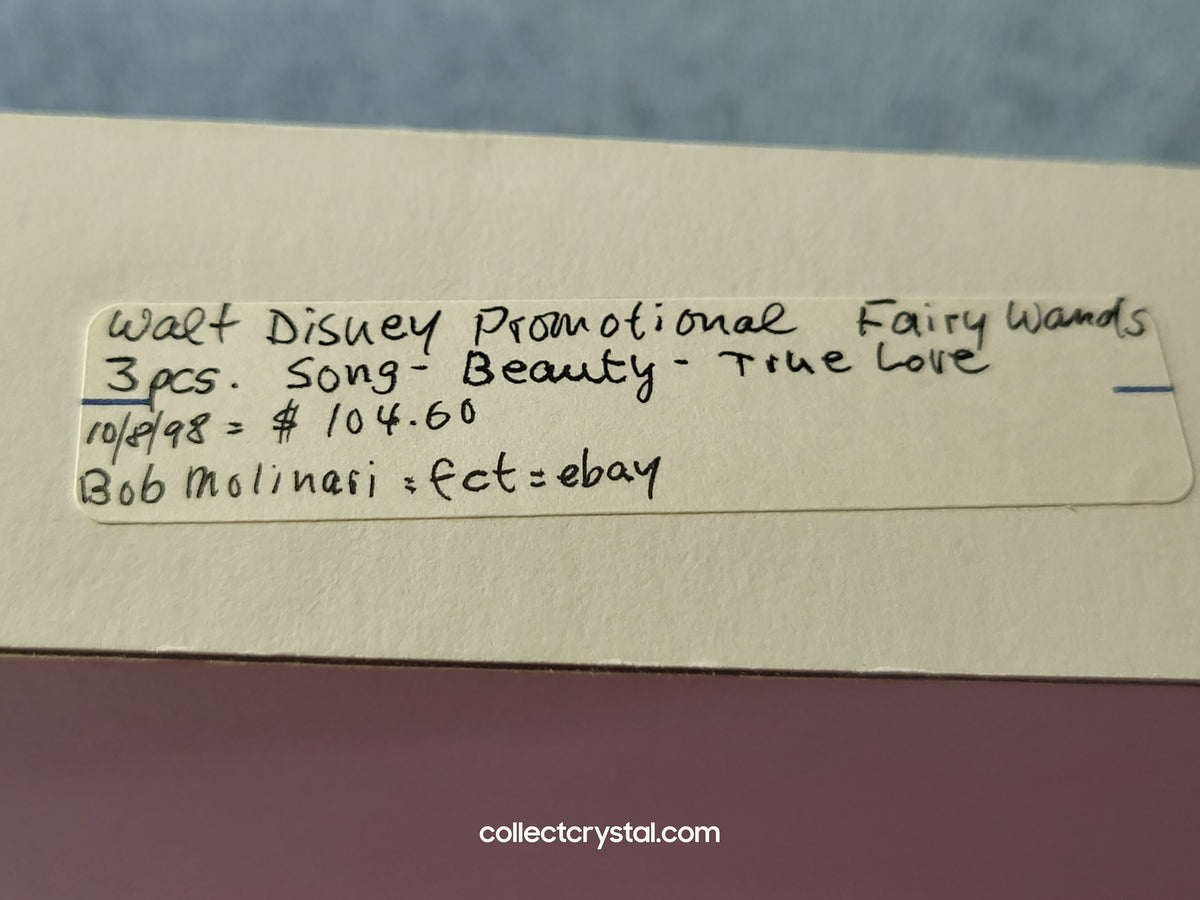 Walt Disney Promotional Fairy Wands
3 pcs. Song - Beauty - True Love
10/8/98 = $ 104.60
Bob Molinari = fct = ebay
collectcrystal.com